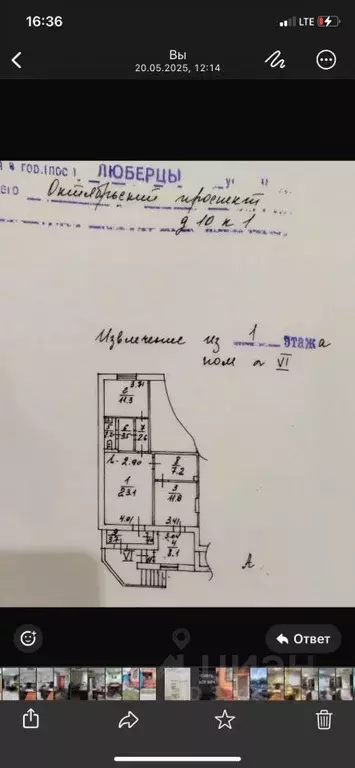 16:36
LTE
Вы
20.05.2025, 12:14
ГОР.(ПОС) ЛЮБЕРЦЫ
Октябрьский проспект
д 10 к 1
Извлечение из 1 этажа
пом № VI
3.71
11.3
6
3.5
7
2.6
h-2.90
8
7.2
1
23.1
3
11.8
4.01
3.41
3.04
4
8.1
VI
А
Ответ
ЦИАН